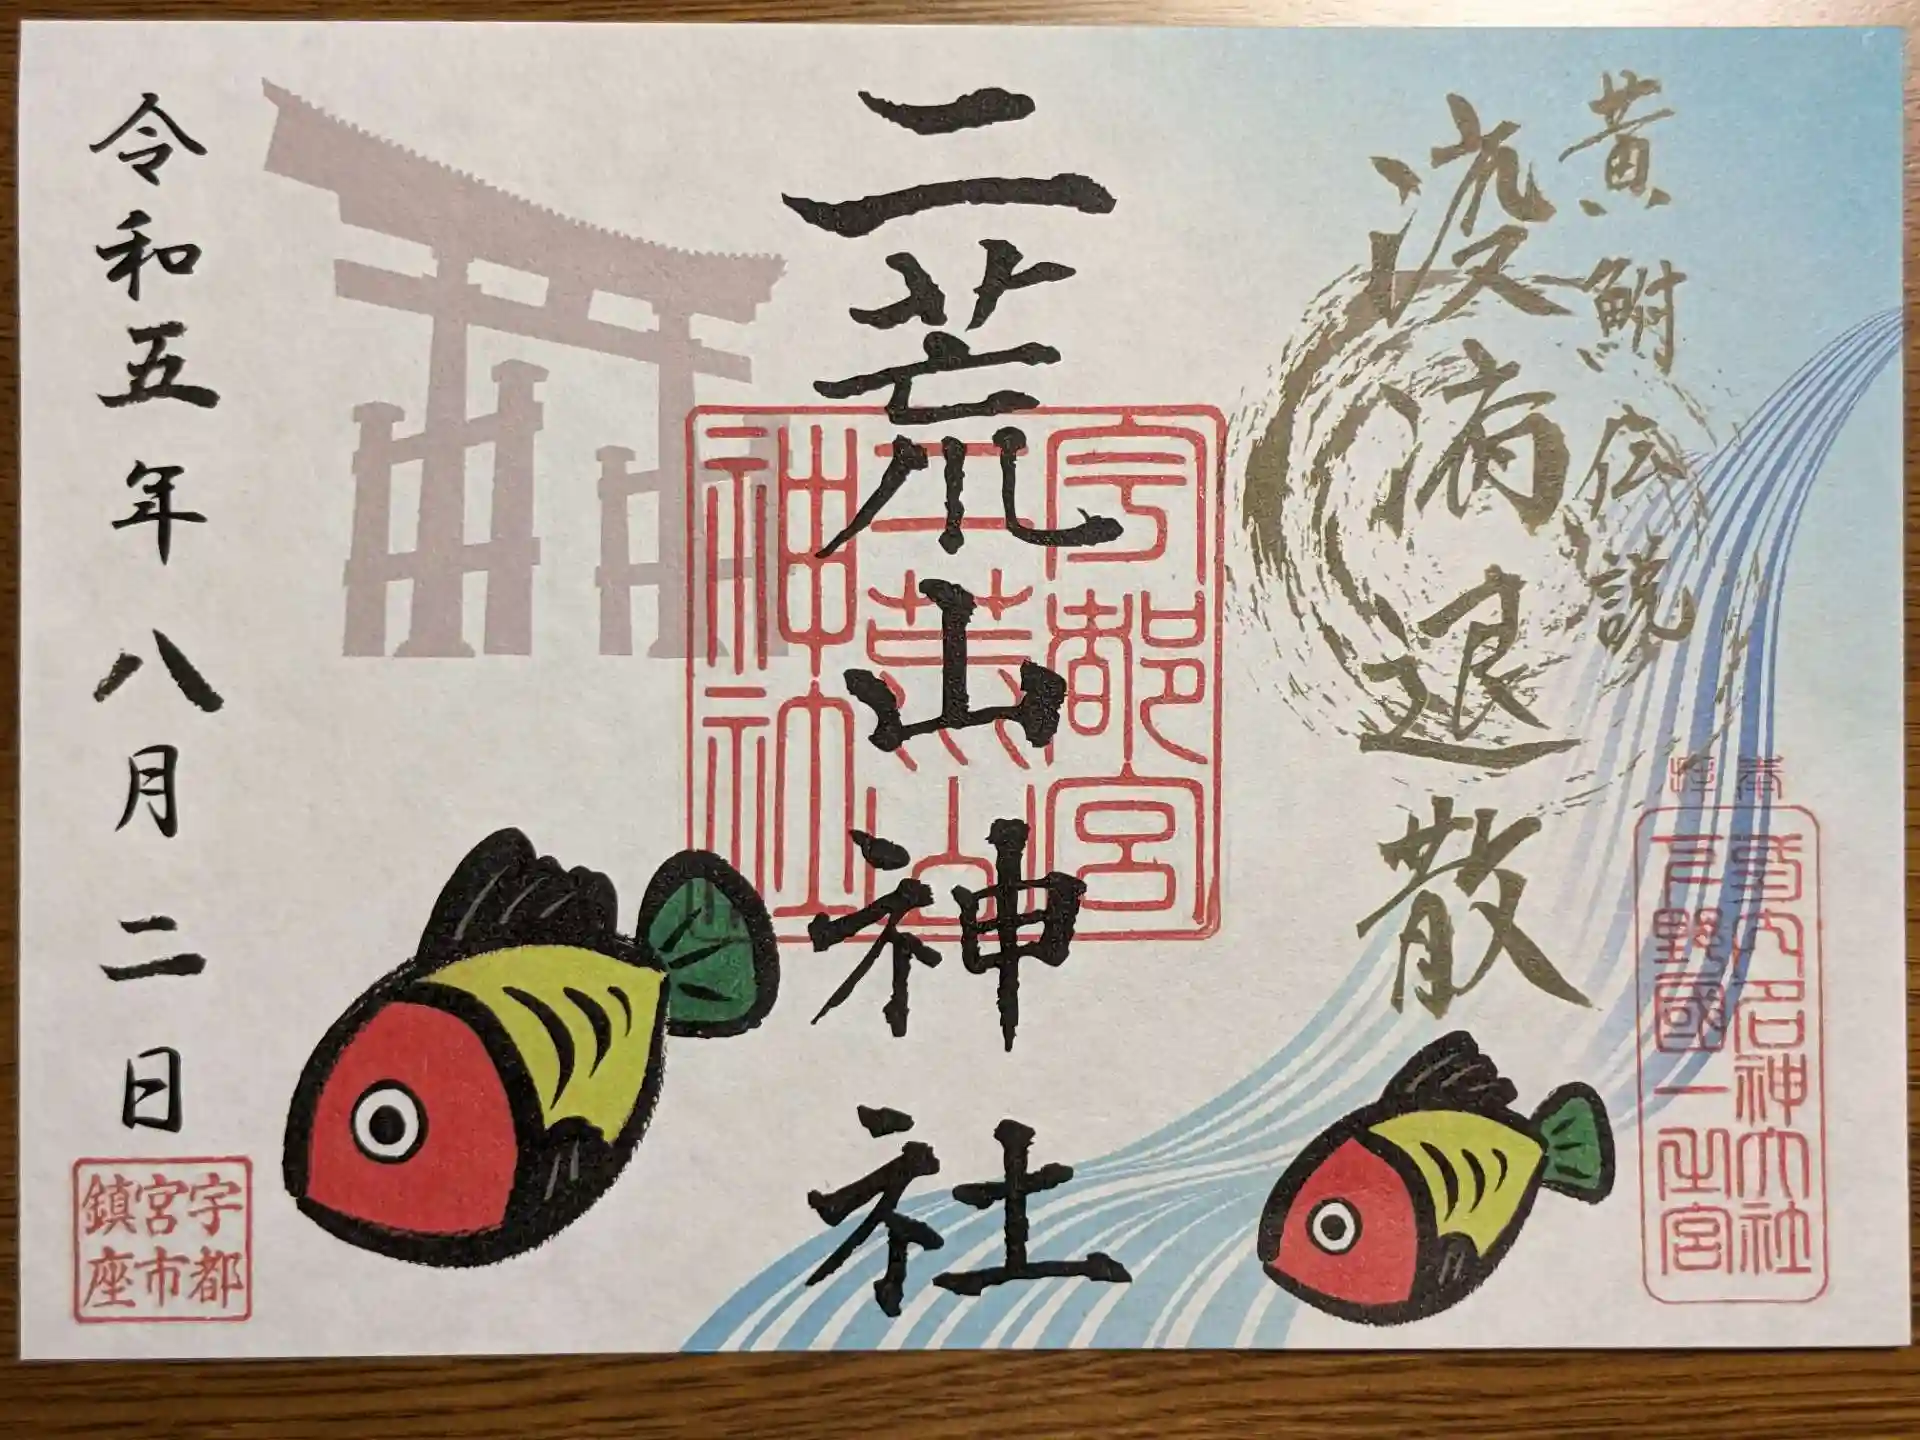 黄鮒伝説
疫病退散
奉拝
式内名神大社
下野國一之宮
二荒山神社
宇都宮
二荒山
神社
令和五年八月二日
宇都
宮市
鎮座